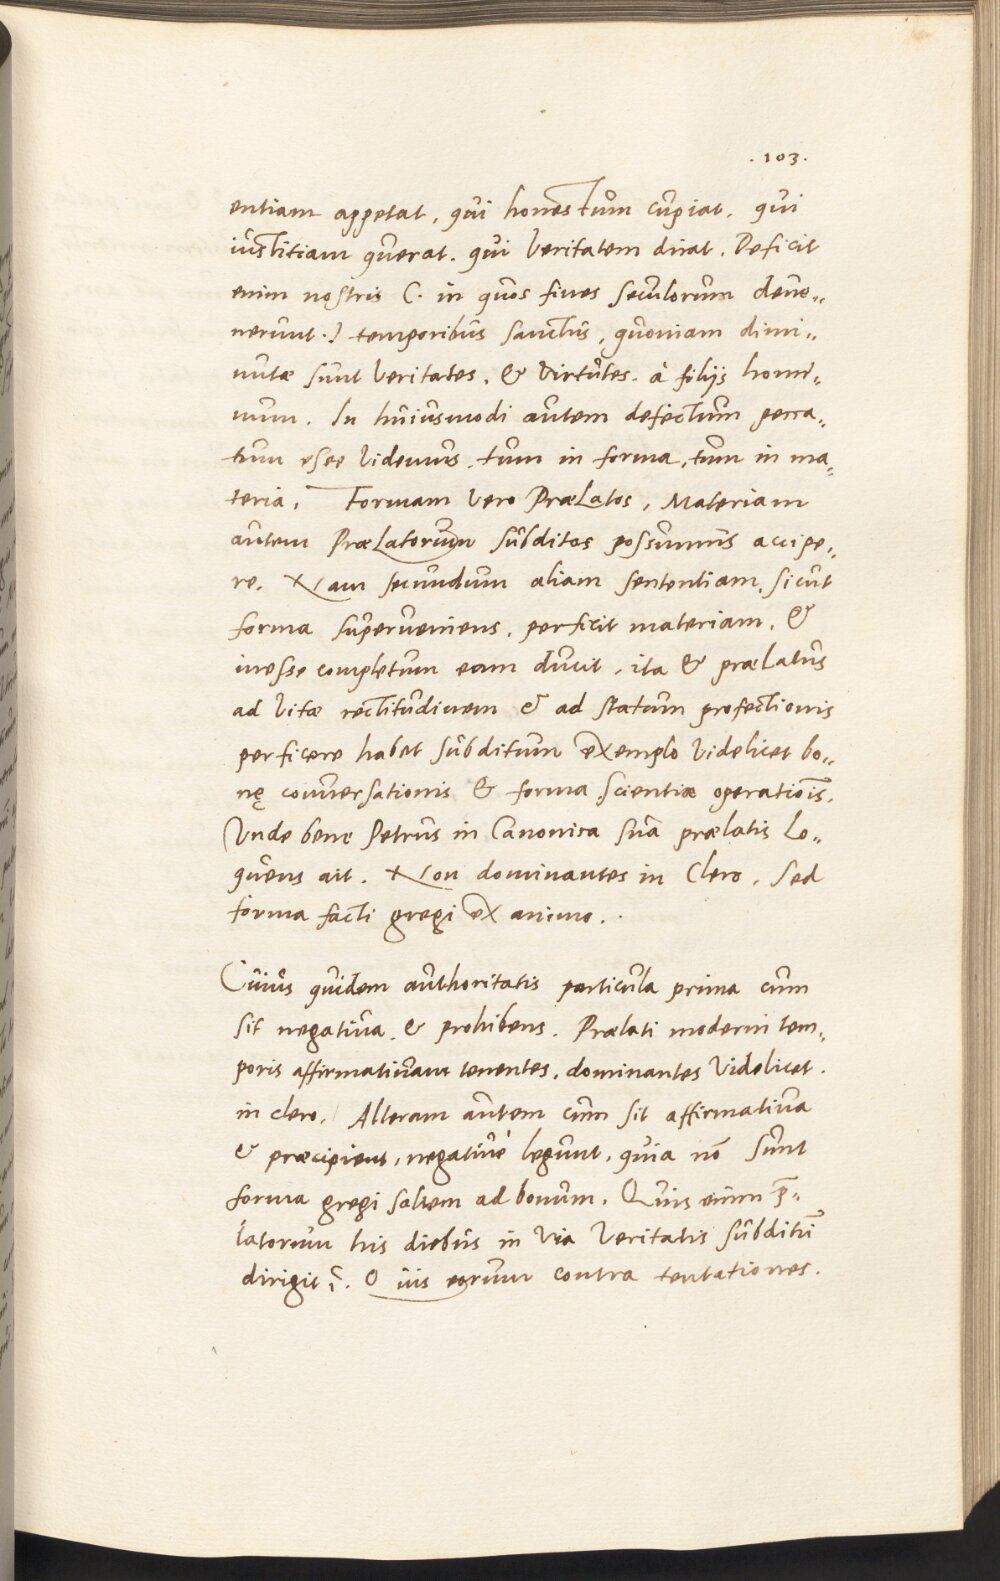 . 103 .
entiam appetat, qui honestum cupiat, qui
iustitiam querat. qui veritatem dicat. Deficit
enim nostris (. in quos fines seculorum deue„
nerunt.) temporibus sanctus, quoniam dimi„
nutæ sunt veritates, & virtutes. à filijs homi„
num. In huiusmodi autem defectum pecca„
tum esse videmus, tum in forma, tum in ma„
teria. Formam vero Prælatos, Materiam
autem Prælatorum subditos possumus accipe„
re. Nam secundum aliam sententiam, sicut
forma superueniens, perficit materiam, &
inesse completum eam ducit, ita & prælatus
ad vitæ rectitudinem & ad statum profectionis
perficere habet subditum exemplo videlicet bo„
nę conuersationis & forma scientiæ operatiōis.
Unde bene Petrus in Canonica sua prælatis lo„
quens ait. Non dominantes in Clero, sed
forma facti gregi ex animo. .
Cuius quidem authoritatis particula prima cum
sit negatiua, & prohibens. Prælati moderni tem„
poris affirmatiuam tenentes, dominantes videlicet.
in clero. Alteram autem cum sit affirmatiua
& præcipiens, negatiué legunt, quia nō sunt
forma gregi saltem ad bonum. Quis enim p̄„
latorum his diebus in via veritatis subditū
dirigit?. O uis eorum contra tentationes.